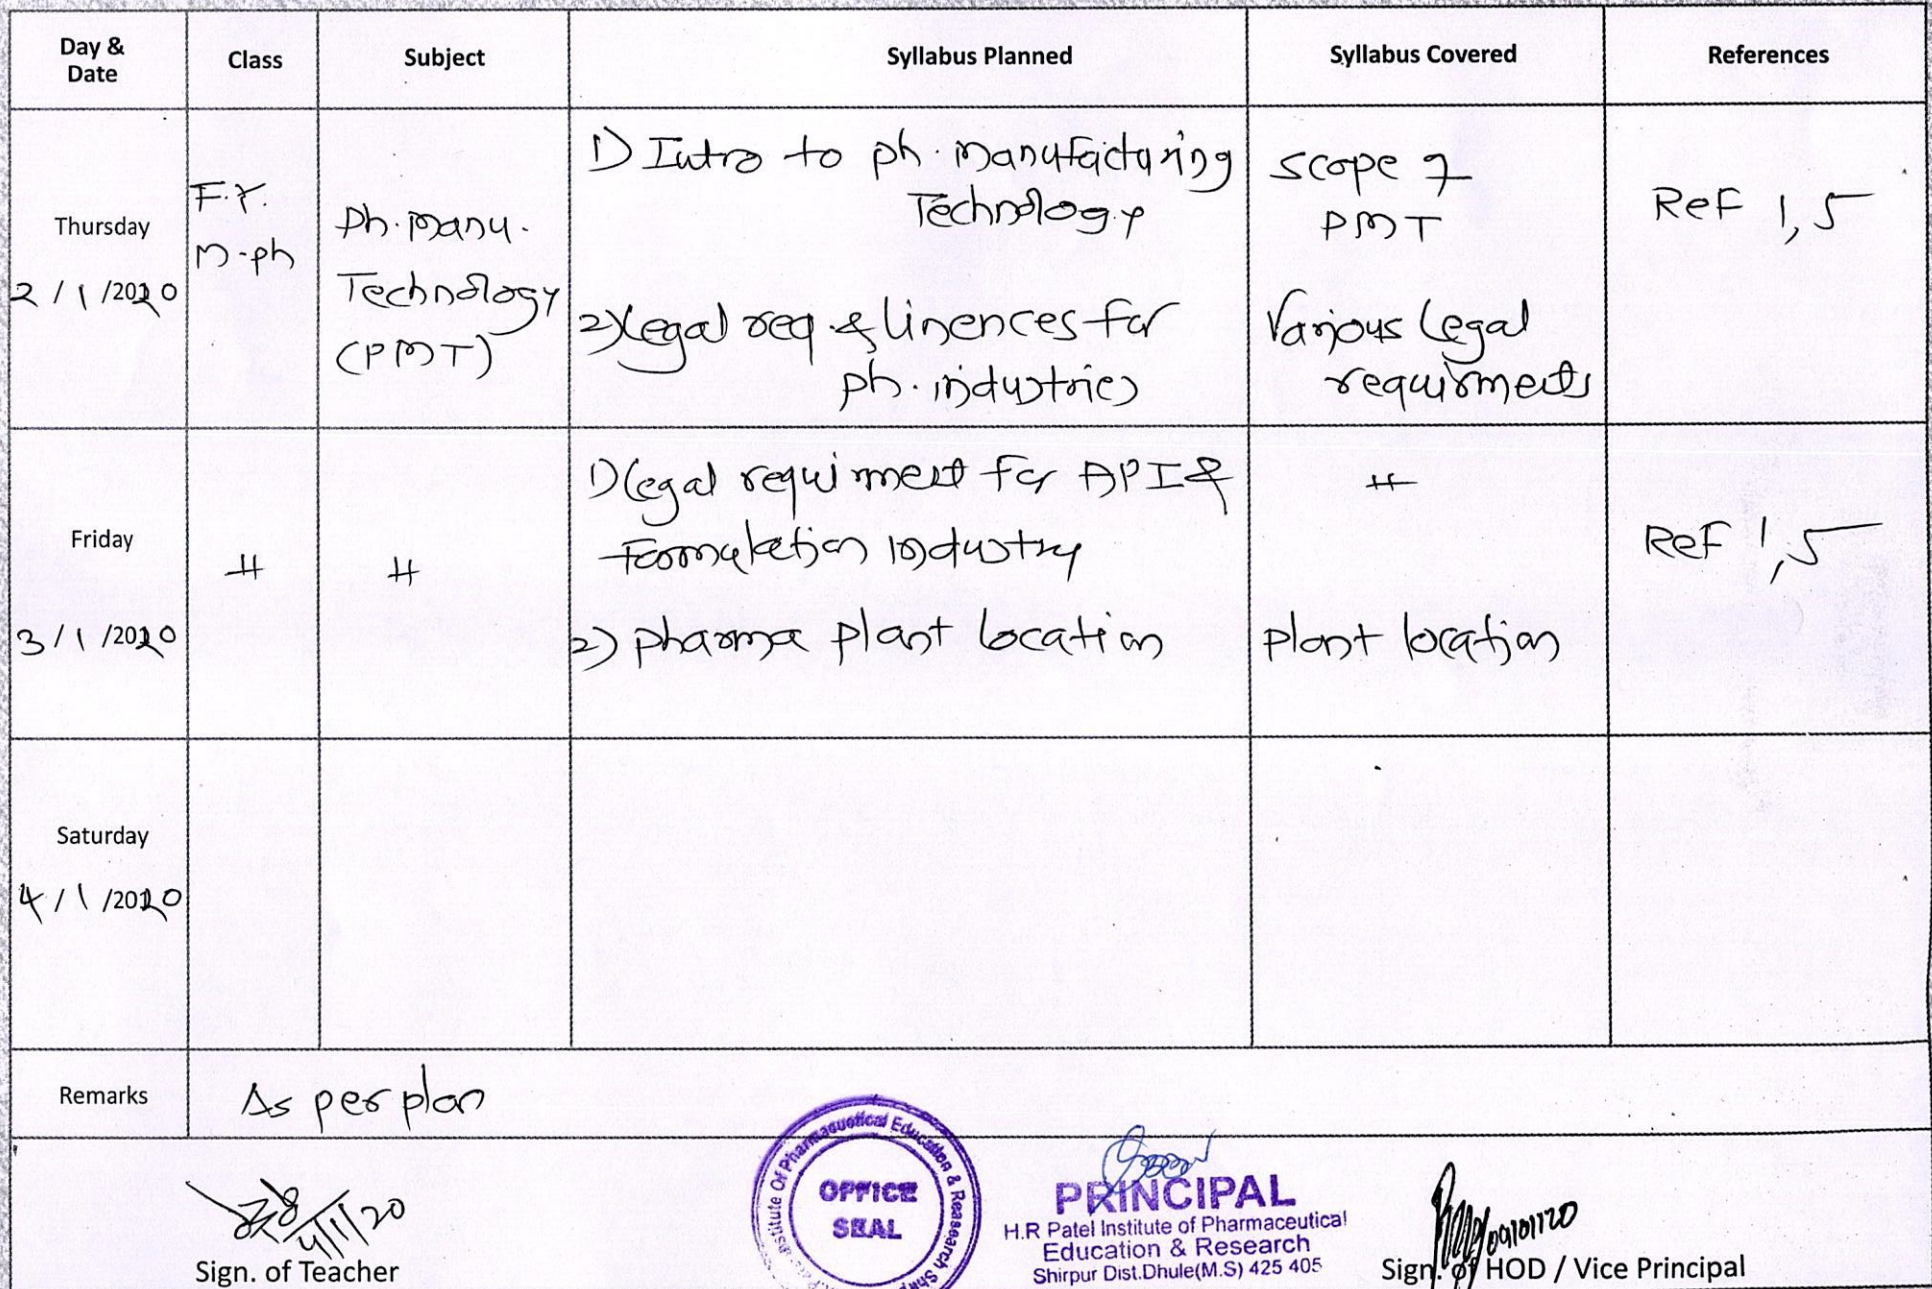 Day &
Date
Class
Subject
Syllabus Planned
Syllabus Covered
References
Thursday
2/1/2020
F.Y.
M.ph
Ph. Manu.
Technology
(PMT)
1) Intro to ph. Manufacturing
Technology
2) Legal req. & linences for
ph. industries
scope of
PMT
Various Legal
requirments
Ref 1, 5
Friday
3/1/2020
〃
〃
1) Legal requirment for API &
Formulation industry
2) pharma plant location
〃
plant location
Ref 1, 5
Saturday
4/1/2020
Remarks
As per plan
4/1/20
Sign. of Teacher
Institute Of Pharmaceutical Education & Reasearch
OFFICE
SEAL
PRINCIPAL
H.R Patel Institute of Pharmaceutical
Education & Research
Shirpur Dist.Dhule(M.S) 425 405
Sign. of HOD / Vice Principal